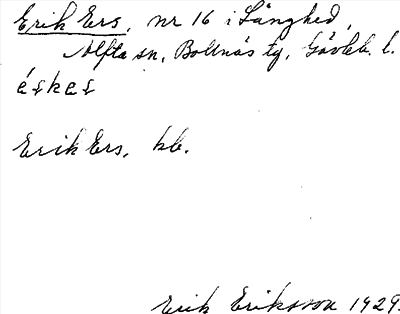 Erik Ers, nr 16 i Långhed,
Alfta sn, Bollnäs tg, Gävleb. l.
Erik Ers, kb.
Erik Eriksson 1929.